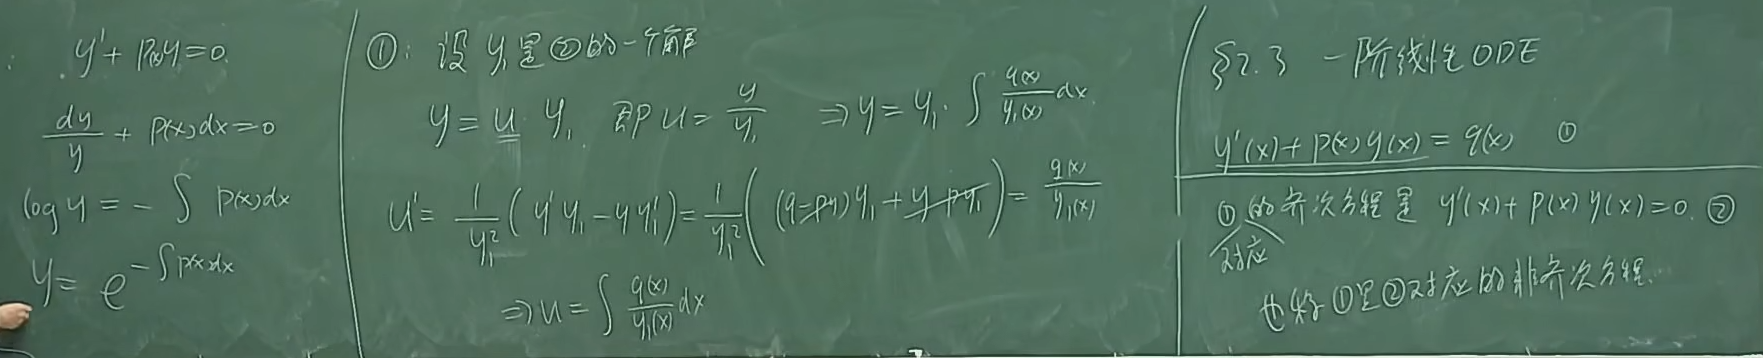 y' + p(x)y = 0.
dy/y + p(x)dx = 0
log y = - ∫ p(x)dx
y = e^{-∫p(x)dx}
①: 设 y₁是②的一个解
y = u y₁. 即 u = y/y₁ ⇒ y = y₁ · ∫ q(x)/y₁(x) dx.
u' = 1/y₁² (y'y₁ - yy₁') = 1/y₁² ((q-py)y₁ + y·py₁) = q(x)/y₁(x)
⇒ u = ∫ q(x)/y₁(x) dx
§2.3 一阶线性ODE
y'(x) + p(x)y(x) = q(x) ①
①的齐次方程是 y'(x) + p(x)y(x) = 0. ②
对应
也称①是②对应的非齐次方程.